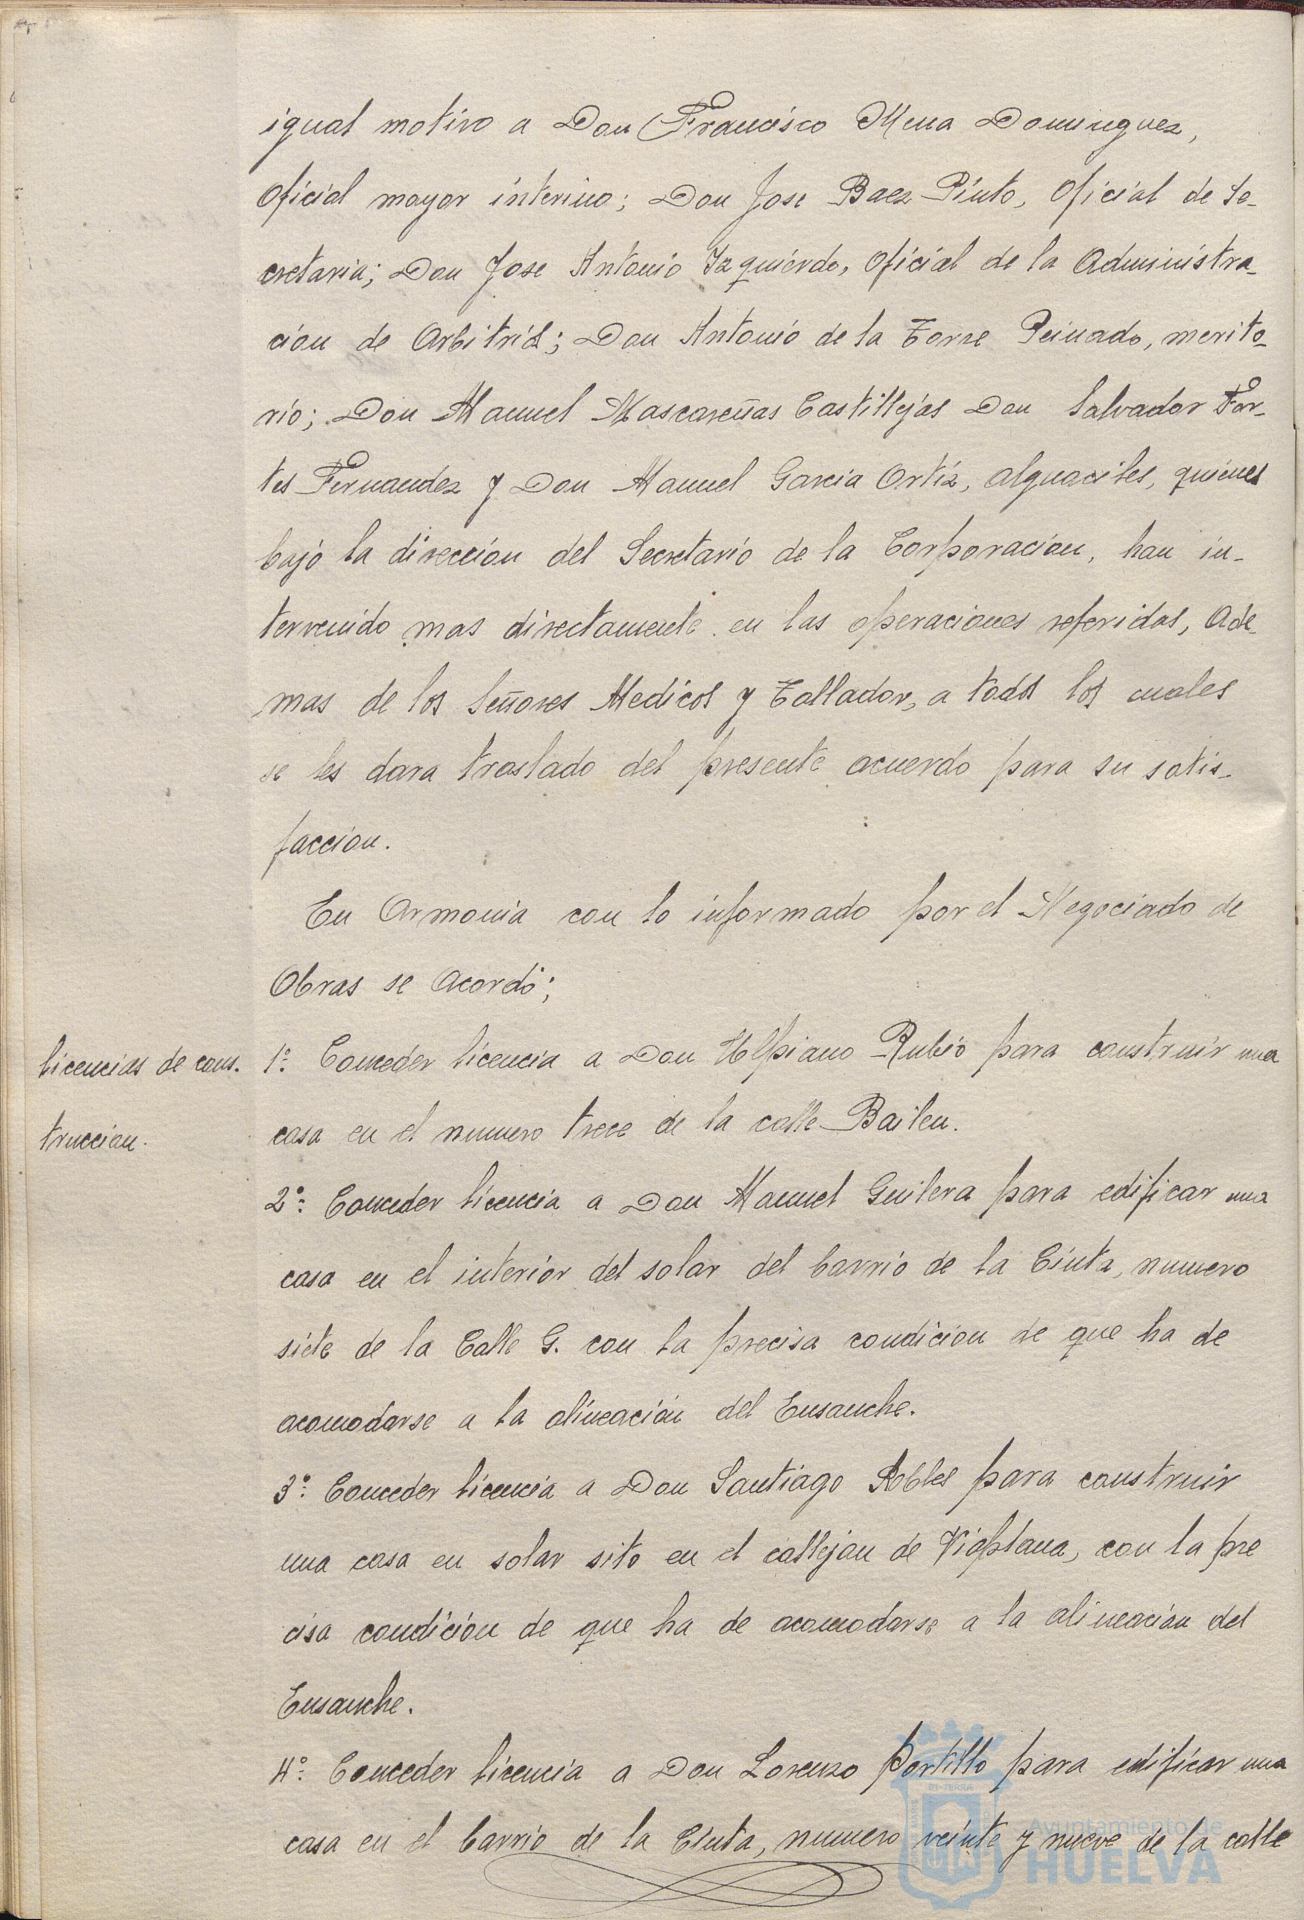 igual motivo a Don Francisco Mena Dominguez,
Oficial mayor interino; Don Jose Baez Pinto, Oficial de Se-
cretaria; Don Jose Antonio Izquierdo, Oficial de la Administra-
cion de Arbitrios; Don Antonio de la Torre Peinado, merito-
rio; Don Manuel Mascareñas Castillejos Don Salvador For-
tes Fernandez y Don Manuel Garcia Ortiz, alguaciles, quienes
bajo la direccion del Secretario de la Corporacion, han in-
tervenido mas directamente en las operaciones referidas, Ade-
mas de los Señores Medicos y Tallador, a todos los cuales
se les dara traslado del presente acuerdo para su satis-
faccion.
En Armonia con lo informado por el Negociado de
Obras se Acordó;
Licencias de cons-
truccion.
1º: Conceder licencia a Don Ulpiano Rubio para construir una
casa en el numero trece de la calle Bailen.
2º: Conceder licencia a Don Manuel Guilera para edificar una
casa en el interior del solar del barrio de la Cinta, numero
siete de la Calle G. con la precisa condicion de que ha de
acomodarse a la alineación del Ensanche.
3º: Conceder licencia a Don Santiago Robles para construir
una casa en solar sito en el callejon de Viaplana, con la pre
cisa condición de que ha de acomodarse a la alineacion del
Ensanche.
4º: Conceder licencia a Don Lorenzo Portillo para edificar una
casa en el barrio de la Cinta, numero veinte y nueve de la calle
Ayuntamiento de
HUELVA